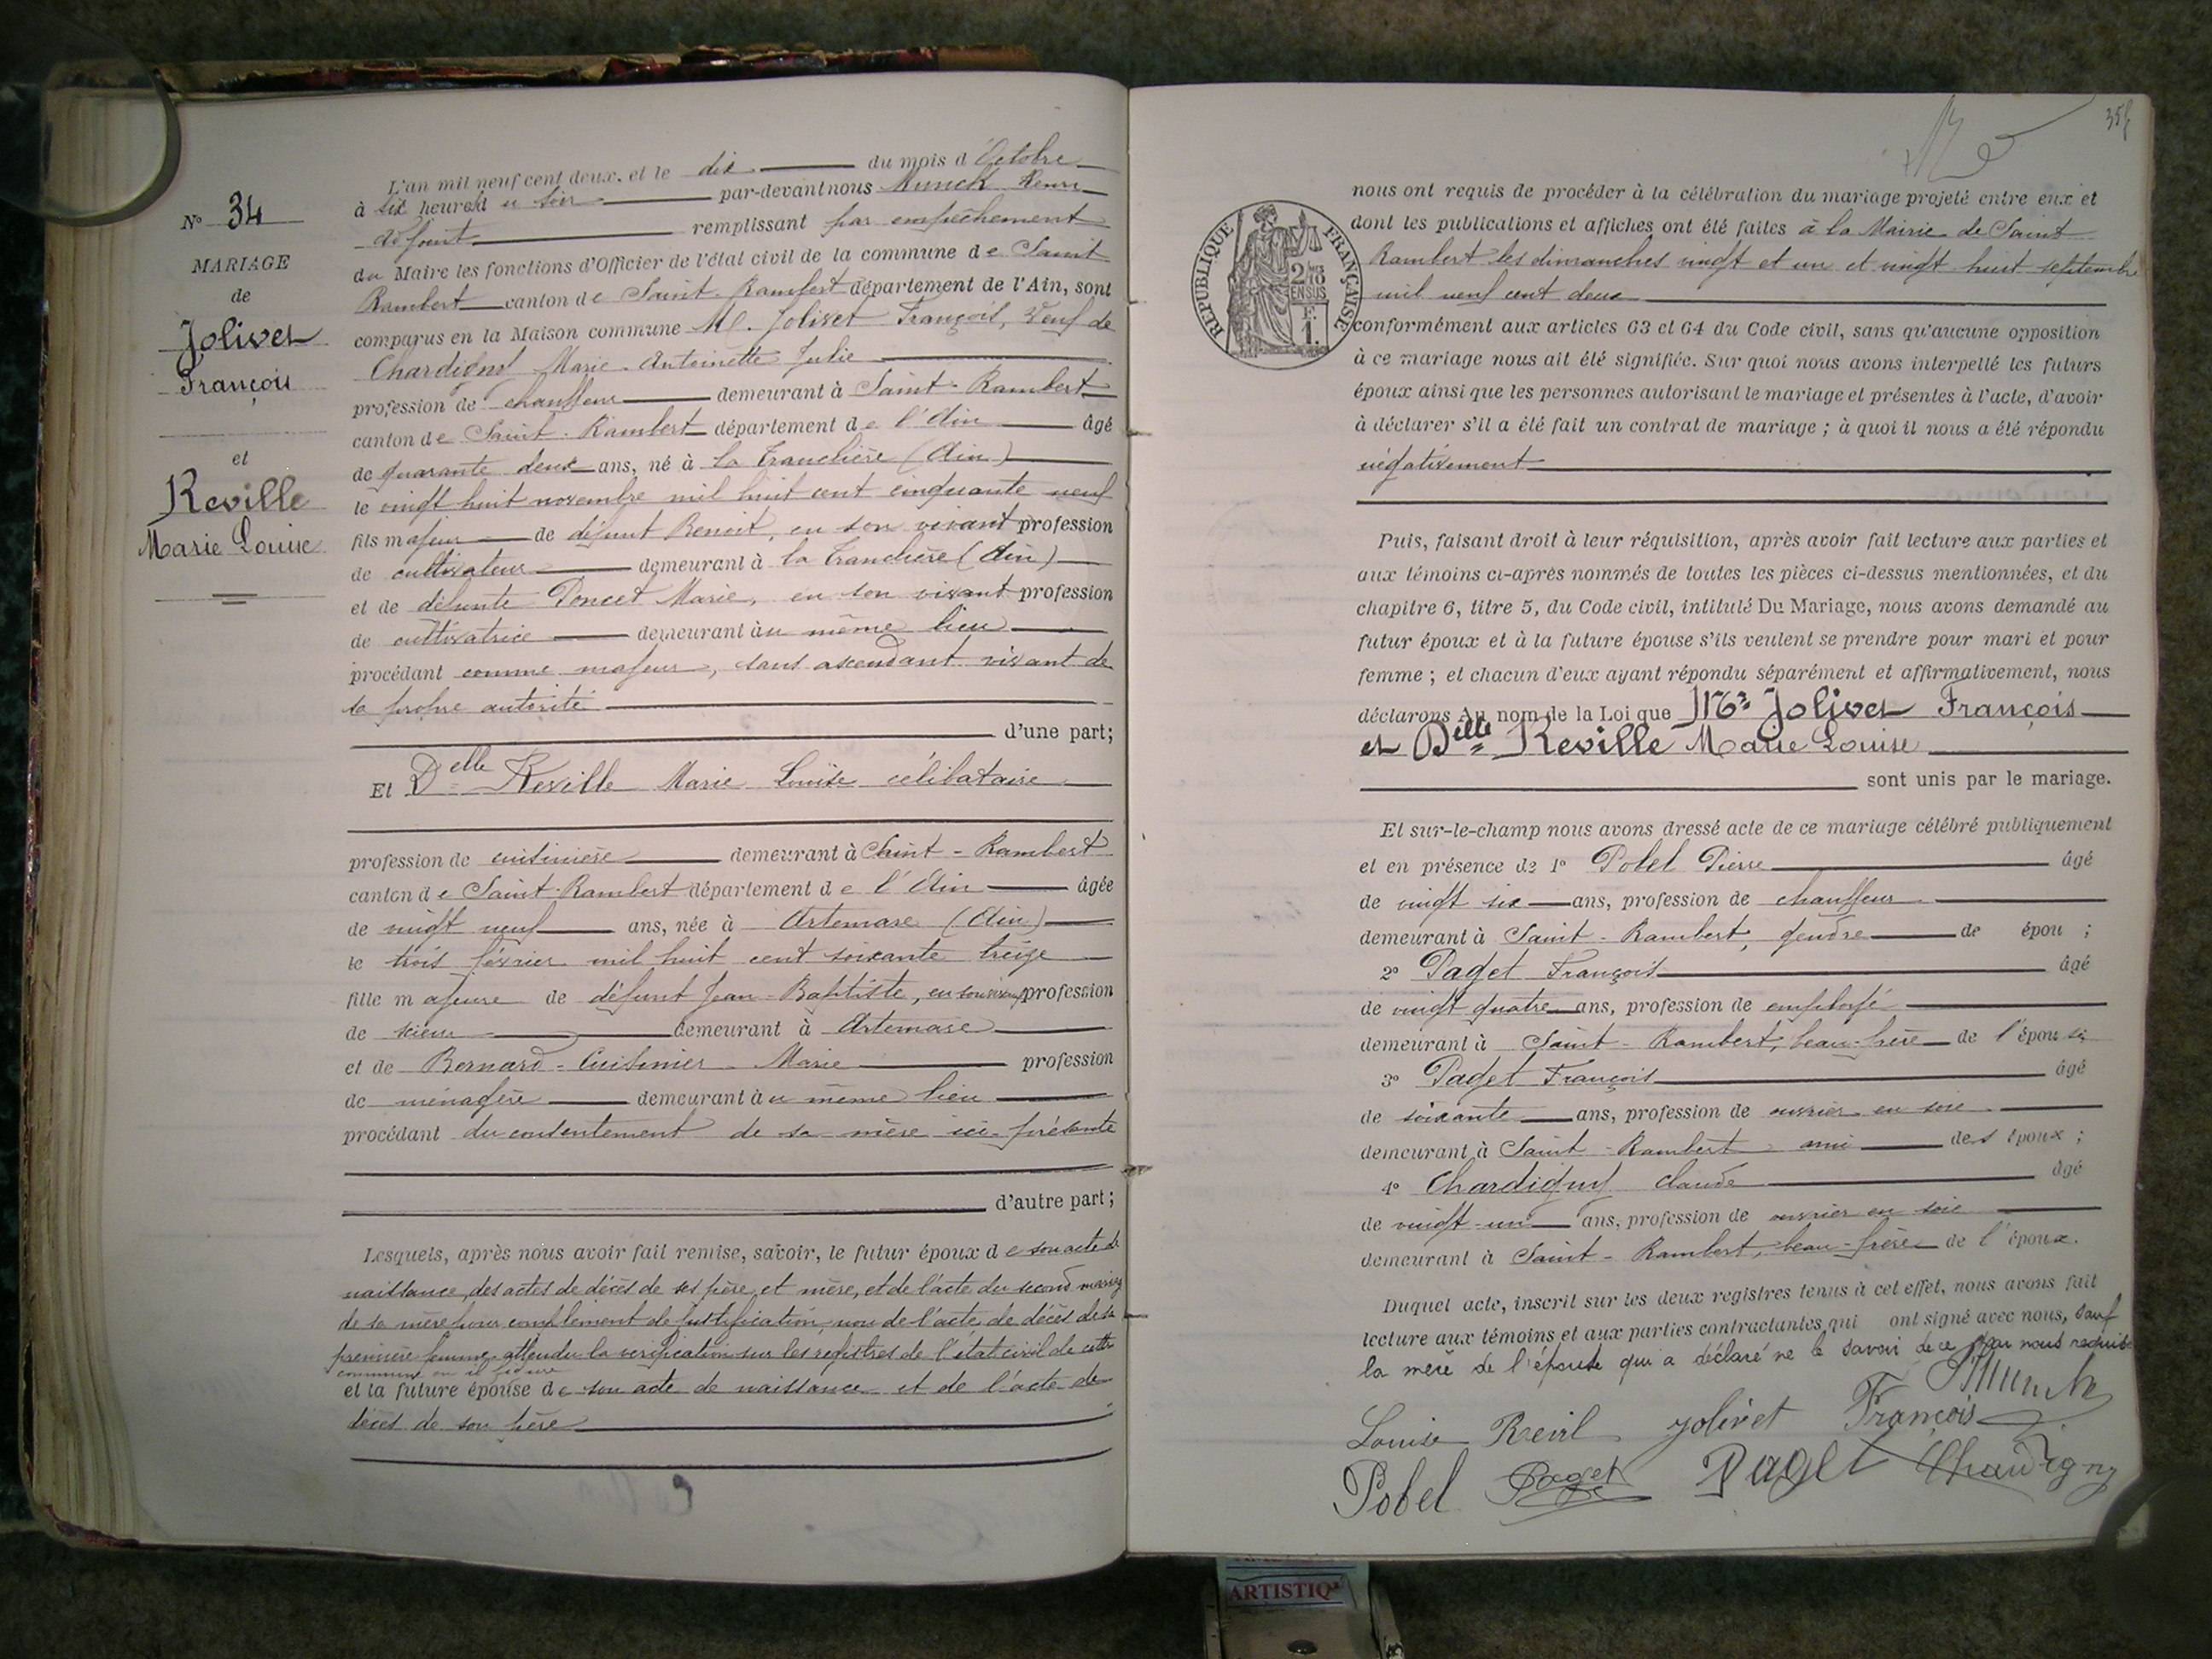 L'an mil neuf cent deux, et le dix du mois d'Octobre
à six heures du soir par-devant nous Munck Henri
adjoint remplissant par empêchement
du Maire les fonctions d'Officier de l'état civil de la commune de Saint
Rambert canton de Saint-Rambert département de l'Ain, sont
comparus en la Maison commune Mr. Jolivet François, veuf de
Chardigny Marie-Antoinette Julie
profession de chauffeur demeurant à Saint-Rambert
canton de Saint-Rambert département de l'Ain âgé
de quarante deux ans, né à la Tranclière (Ain)
le vingt huit novembre mil huit cent cinquante neuf
fils majeur de défunt Benoit, en son vivant profession
de cultivateur demeurant à la Tranclière (Ain)
et de défunte Poncet Marie, en son vivant profession
de cultivatrice demeurant au même lieu
procédant comme majeur, sans ascendant vivant de
sa propre autorité
d'une part;
Et Delle Reville Marie Louise célibataire
profession de cuisinière demeurant à Saint-Rambert
canton de Saint-Rambert département de l'Ain âgée
de vingt neuf ans, née à Artemare (Ain)
le trois février mil huit cent soixante treize
fille majeure de défunt Jean-Baptiste, en son vivant profession
de scieur demeurant à Artemare
et de Bernard-Cuisinier Marie profession
de ménagère demeurant au même lieu
procédant du consentement de sa mère ici-présente
d'autre part;
Lesquels, après nous avoir fait remise, savoir, le futur époux de son acte de
naissance, des actes de décès de ses père et mère, et de l'acte du second mariage
de sa mère pour complément de justification, non de l'acte de décès de sa
première femme attendu la vérification sur les registres de l'état civil de cette
commune où il figure
et la future épouse de son acte de naissance et de l'acte de
décès de son père
No 34
MARIAGE
de
Jolivet
François
et
Reville
Marie Louise
355
RÉPUBLIQUE FRANÇAISE
2/10
EN SUS
F.
1.
nous ont requis de procéder à la célébration du mariage projeté entre eux et
dont les publications et affiches ont été faites à la Mairie de Saint
Rambert les dimanches vingt et un et vingt huit septembre
mil neuf cent deux
conformément aux articles 63 et 64 du Code civil, sans qu'aucune opposition
à ce mariage nous ait été signifiée. Sur quoi nous avons interpellé les futurs
époux ainsi que les personnes autorisant le mariage et présentes à l'acte, d'avoir
à déclarer s'il a été fait un contrat de mariage ; à quoi il nous a été répondu
négativement
Puis, faisant droit à leur réquisition, après avoir fait lecture aux parties et
aux témoins ci-après nommés de toutes les pièces ci-dessus mentionnées, et du
chapitre 6, titre 5, du Code civil, intitulé Du Mariage, nous avons demandé au
futur époux et à la future épouse s'ils veulent se prendre pour mari et pour
femme ; et chacun d'eux ayant répondu séparément et affirmativement, nous
déclarons Au nom de la Loi que Mr Jolivet François
et Delle Reville Marie Louise
sont unis par le mariage.
Et sur-le-champ nous avons dressé acte de ce mariage célébré publiquement
et en présence de 1o Pobel Pierre âgé
de vingt six ans, profession de chauffeur
demeurant à Saint-Rambert, gendre de épou ;
2o Paget François âgé
de vingt quatre ans, profession de employé
demeurant à Saint-Rambert, beau-frère de l'épouse
3o Paget François âgé
de soixante ans, profession de ouvrier en soie
demeurant à Saint-Rambert ami des époux ;
4o Chardigny Claude âgé
de vingt-un ans, profession de ouvrier en soie
demeurant à Saint-Rambert, beau-frère de l'époux.
Duquel acte, inscrit sur les deux registres tenus à cet effet, nous avons fait
lecture aux témoins et aux parties contractantes qui ont signé avec nous, sauf
la mère de l'épouse qui a déclaré ne le savoir de ce par nous requise
Munck
Louise Revil Jolivet François
Pobel Paget Paget Chardigny
ARTISTIQ